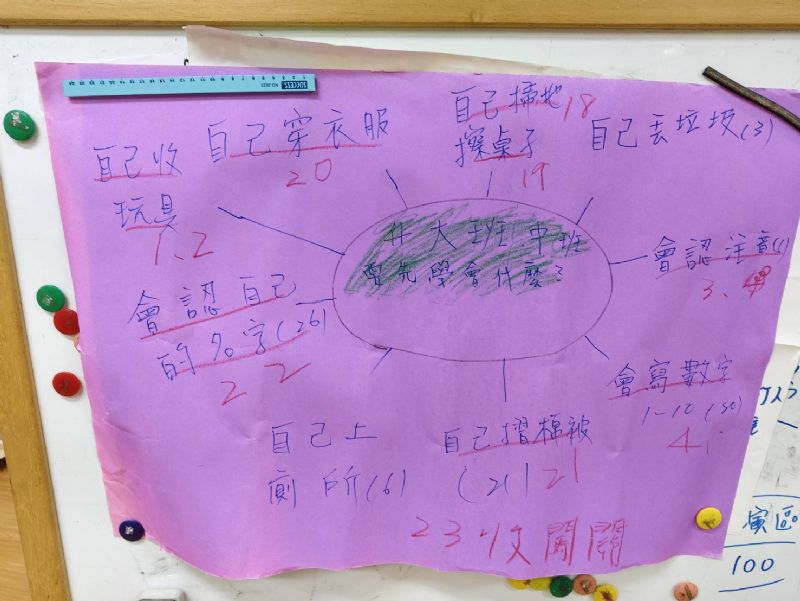 SUCCESS
自己掃地 18
擦桌子
19
自己丟垃圾(3)
自己穿衣服
20
自己收
玩具
1、2
升大班中班
要先學會什麼?
會認注音(1)
3、
會認自己
的名字(26)
22
會寫數字
1-10(30)
4、
自己上
廁所(6)
自己摺棉被
(21) 21
23收關關
演區
100